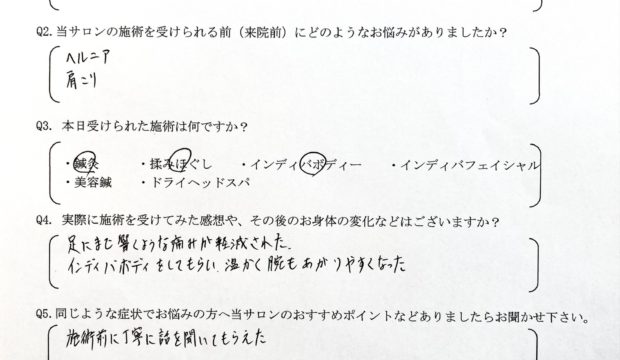 Q2.当サロンの施術を受けられる前（来院前）にどのようなお悩みがありましたか？
ヘルニア
肩こり
Q3. 本日受けられた施術は何ですか？
・鍼灸 ・揉みほぐし ・インディバボディー ・インディバフェイシャル
・美容鍼 ・ドライヘッドスパ
Q4. 実際に施術を受けてみた感想や、その後のお身体の変化などはございますか？
足にまで響くような痛みが軽減された.
インディバボディをしてもらい、温かく腕もあがりやすくなった
Q5.同じような症状でお悩みの方へ当サロンのおすすめポイントなどありましたらお聞かせ下さい。
施術前に丁寧に話を聞いてもらえた